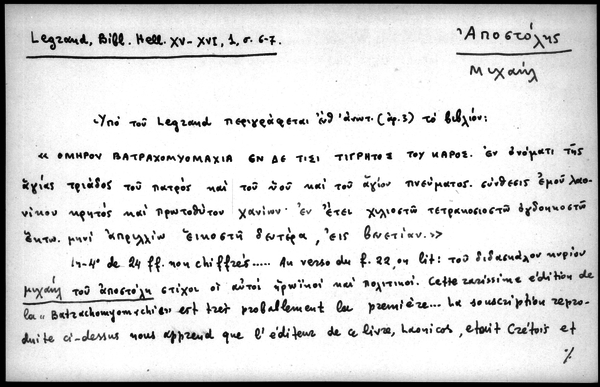 Legrand, Bibl. Hell. XV-XVI, 1, σ. 6-7.
Ἀποστόλης
Μιχαήλ
Ὑπό τοῦ Legrand περιγράφεται ἐνθ' ἀνωτ. (ἀρ. 3) τό βιβλίον:
« ΟΜΗΡΟΥ ΒΑΤΡΑΧΟΜΥΟΜΑΧΙΑ ΕΝ ΔΕ ΤΙΣΙ ΤΙΓΡΗΤΟΣ ΤΟΥ ΚΑΡΟΣ. Ἐν ὀνόματι τῆς
ἁγίας τριάδος τοῦ πατρός καί τοῦ ὑιοῦ καί τοῦ ἁγίου πνεύματος. σύνθεσις ἐμοῦ λαο-
νίκου κρητός καί πρωτοθύτου χανίων· ἐν ἔτει χιλιοστῷ τετρακοσιοστῷ ὀγδοηκοστῷ
ἕκτῳ. μηνί ἀπριλλίῳ εἰκοστῇ δευτέρᾳ, εἰς βενετίαν.»
In-4° de 24 ff. non chiffrés..... Au verso du f. 22, on lit: τοῦ διδασκάλου κυρίου
μιχαήλ τοῦ ἀποστόλη στίχοι οἱ αὐτοί ἡρωϊκοί καί πολιτικοί. Cette rarissime édition de
la "Batrachomyomachie" est tret proballement la première... La souscription repro-
duite ci-dessus nous apprend que l'éditeur de ce livre, Laonicos, etait Crétois et
%